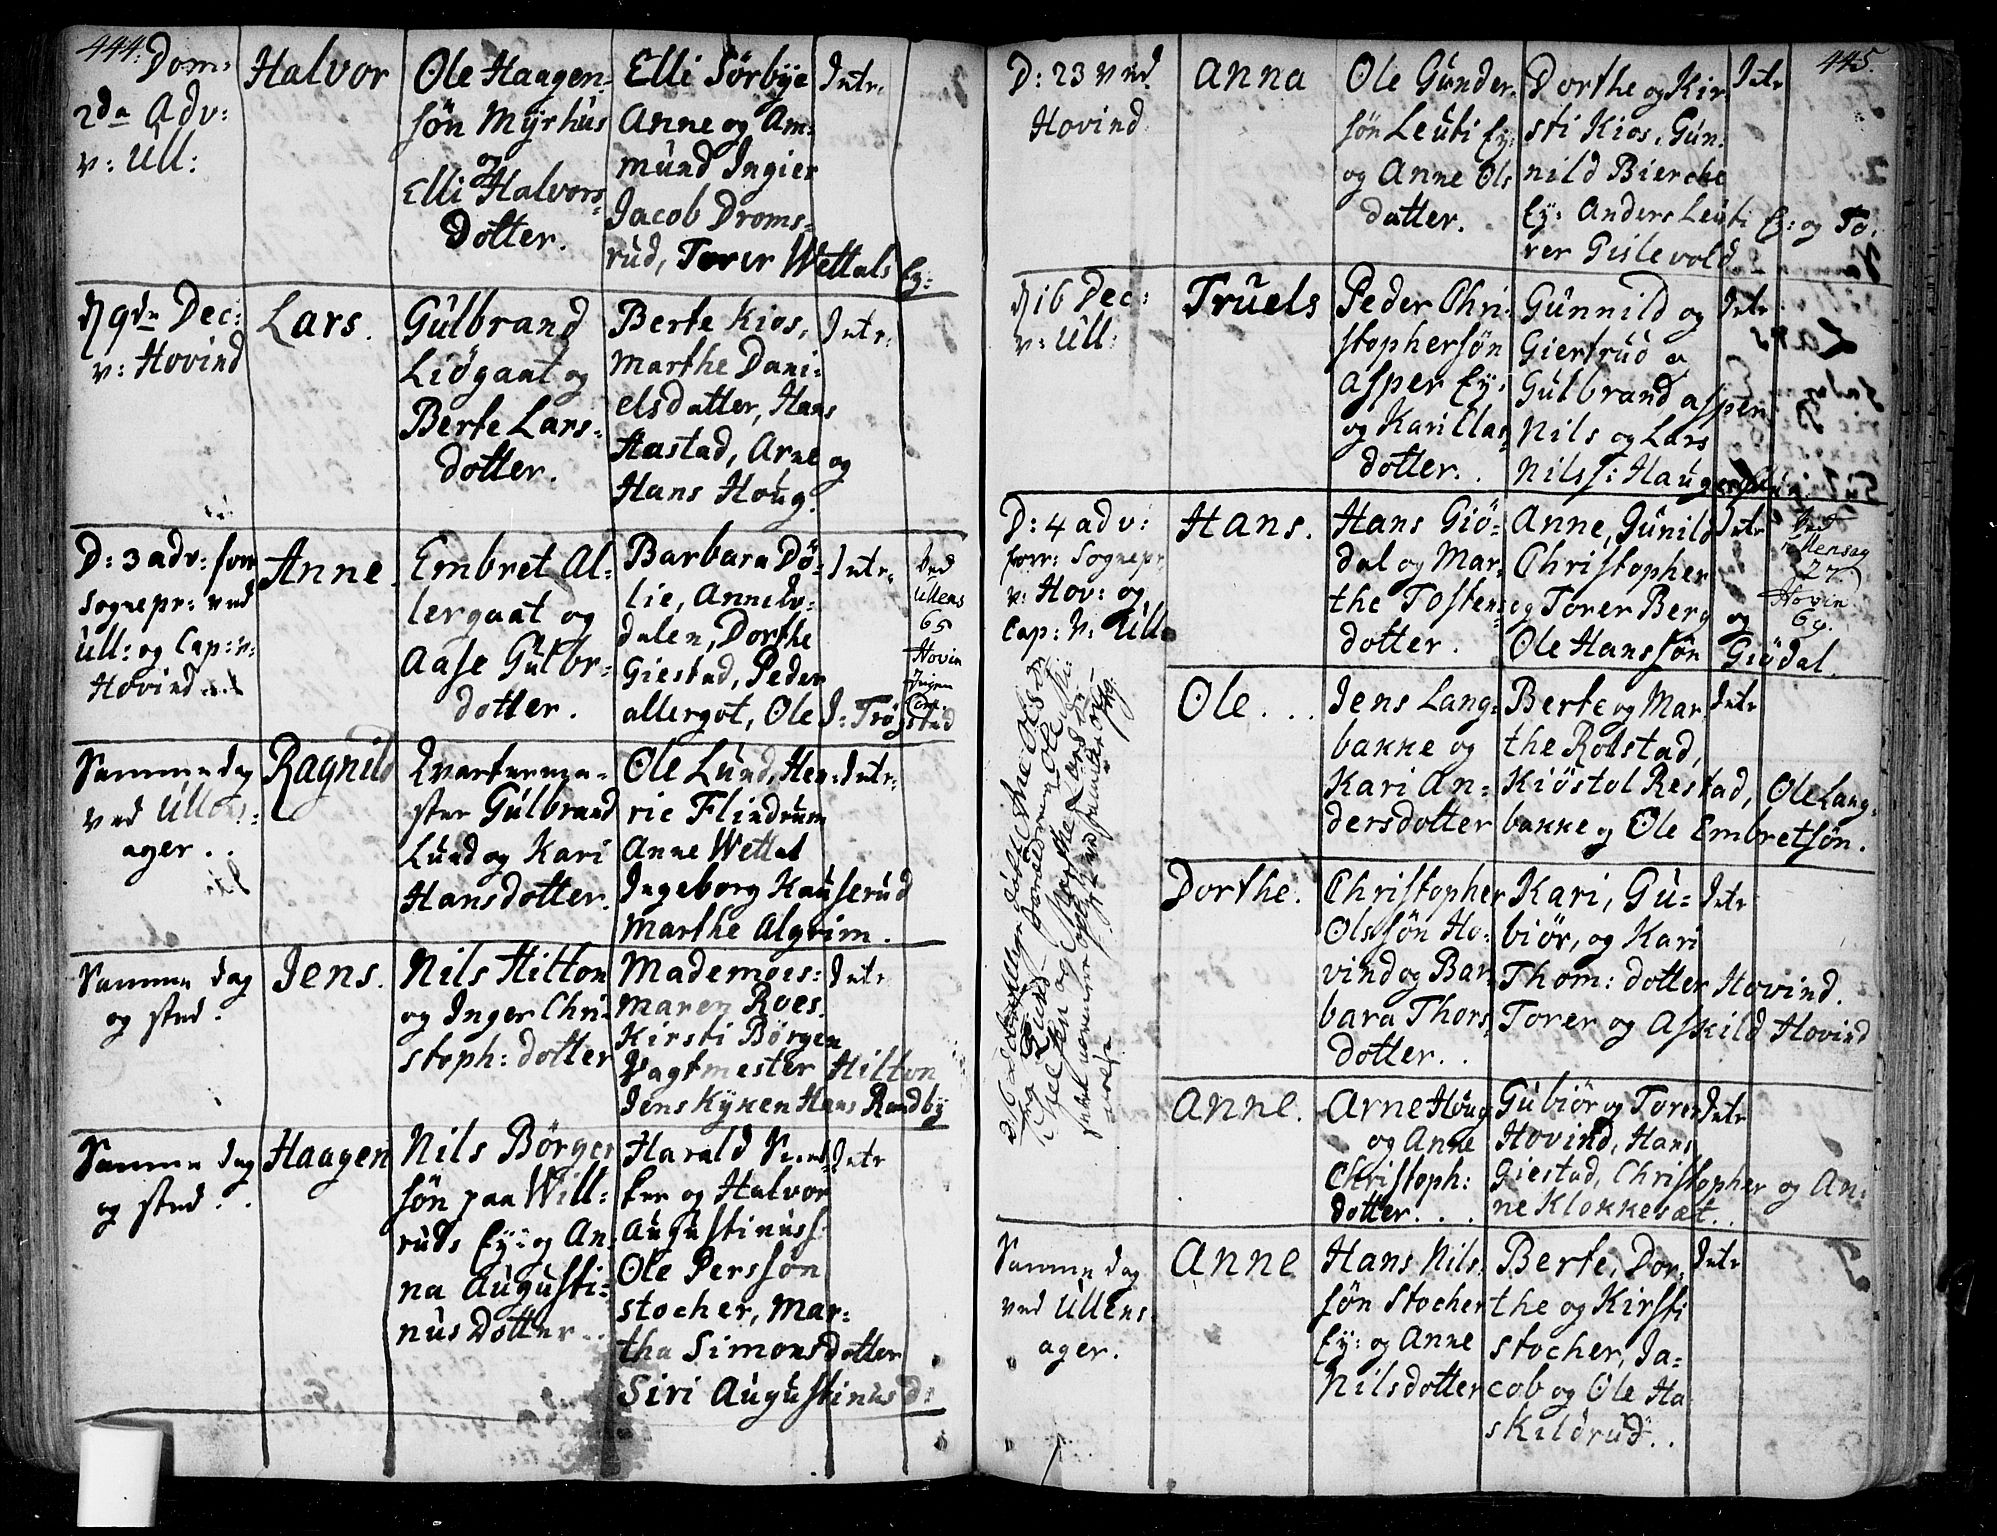 444.
Dom:
2da Adv:
v: Ull:
Halvor
Ole Haagen-
søn Myrhus
og
Elli Halvors-
Dotter.
Elli Sørbye
Anne og Am-
mund Ingier
Jacob Droms-
rud, Torer Wettals Ey:
Intr.
9de Dec:
v: Hovind
Lars.
Gulbrand
Liøgaat og
Berte Lars-
dotter.
Berte Kios,
Marthe Dani-
elsdatter, Hans
Hastad, Arne og
Hans Houg.
Intr.
D: 3 adv: forr
Sognepr: ved
Ull: og Cap: v:
Hovind
Anne.
Embret Al-
lergaat og
Aase Gulbr-
dotter.
Barbara Dø-
lie, Anne
dalen, Dorthe
Giestad, Peder
allergot, Ole I: Trøgstad
Intr.
Ved
Ullens
65
Hovin
Ingen
Com.
Samme dag
ved Ullens-
ager..
Ragnild
Qvarterme-
ster Gulbrand
Lund og Kari
Hansdotter.
Ole Lund, Hen-
ric Flindrum
Anne Wettal
Ingeborg Kauserud
Marthe Algrim.
Intr.
Samme dag
og sted.
Jens.
Nils Hilton
og Inger Chri-
stoph: dotter
Mademois:
Maren Roes.
Kirsti Børgen
Vagtmester Hilton
Jens Kyken Hans Randby
Intr
Samme dag
og sted..
Haagen
Nils Børger
søn paa Will-
ruds Ey: og An-
na Augusti-
nus Dotter..
Harald
ter og Halvor
Augustinuss.
Ole Perssøn
stocher, Mar-
tha Simonsdotter
Siri Augustinusd:
Intr
445.
D: 23 ved
Hovind
Anna
Ole Gunder-
søn Leuti Ey:
og Anne Ols
datter.
Dorthe og Kir-
sti Kios, Gun-
nild Bierche
Ey: Anders Leuti Ey: og To-
rer Gislevold
Intr
16 Dec:
v: Ull:
Truels
Peder Chri-
stophersøn
Asper Ey:
og Kari Clas
dotter..
Gunnild og
Giertrud
Gulbrand asper
Nils og Lars
Nilss: Haug
Intr
D: 4 adv:
forr: Sognepr
v: Hov: og
Cap: v: Ull
Hans.
Hans Giø-
dal og Mar-
the Tostens-
dotter.
Anne, Gunild
Christopher
og Torer Berg og
Ole Hanssøn Giødal.
Intr
Ved
Ullensag
27
Hovin
69.
Ole...
Jens Lang-
bakke og
Kari An-
dersdotter
Berte og Mar
the Robstad,
Kiøstol Restad, Ole Lang-
bakke og Ole Embretsøn.
Intr
Dorthe.
Christopher
Olssøn Ho-
vind og Bar-
bara Thors
dotter..
Kari, Gu-
biør, og Kari
Thom: dotter Hovind.
Torer og Askild Hovind
Intr
Anne.
Arne Houg
og Anne
Christoph:
dotter...
Gubiør og Torer
Hovind, Hans
Giestad, Christopher og An-
ne Klokkesæt..
Intr
Samme dag
ved Ullens-
ager.
Anne
Hans Nils-
søn Stocher
Ey: og Anne
Nilsdotter
Berte, Dor-
the og Kirsti
stocher, Ja-
cob og Ole Ha-
skildrud..
Intr